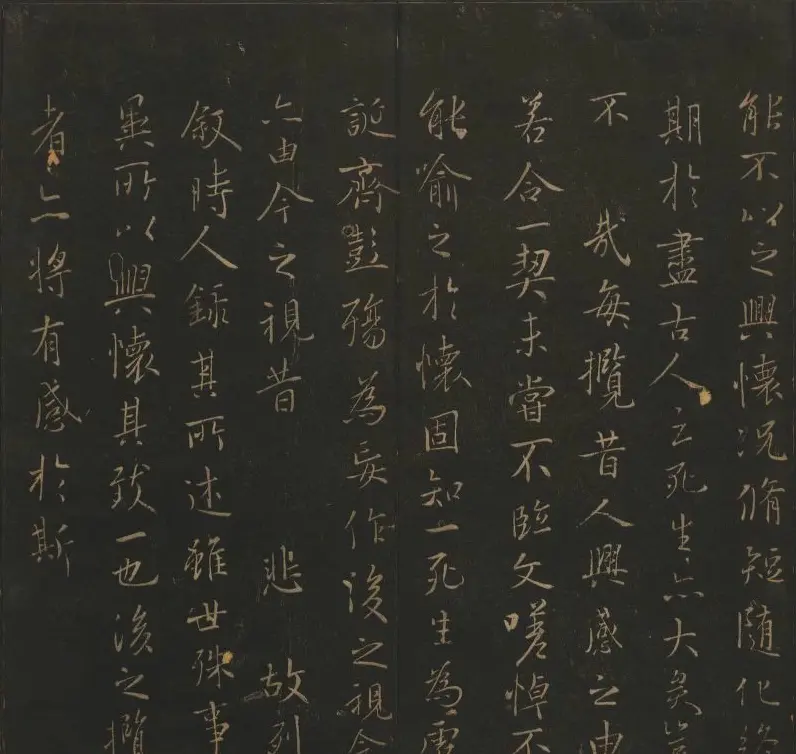 能不以之興懷况脩短随化終
期於盡古人云死生亦大矣豈
不 哉每攬昔人興感之由
若合一契未嘗不臨文嗟悼不
能喻之於懷固知一死生為虛
誕齊彭殤為妄作後之視今
亦由今之視昔 悲 故列
敘時人録其所述雖世殊事
異所以興懷其致一也後之攬
者亦将有感於斯